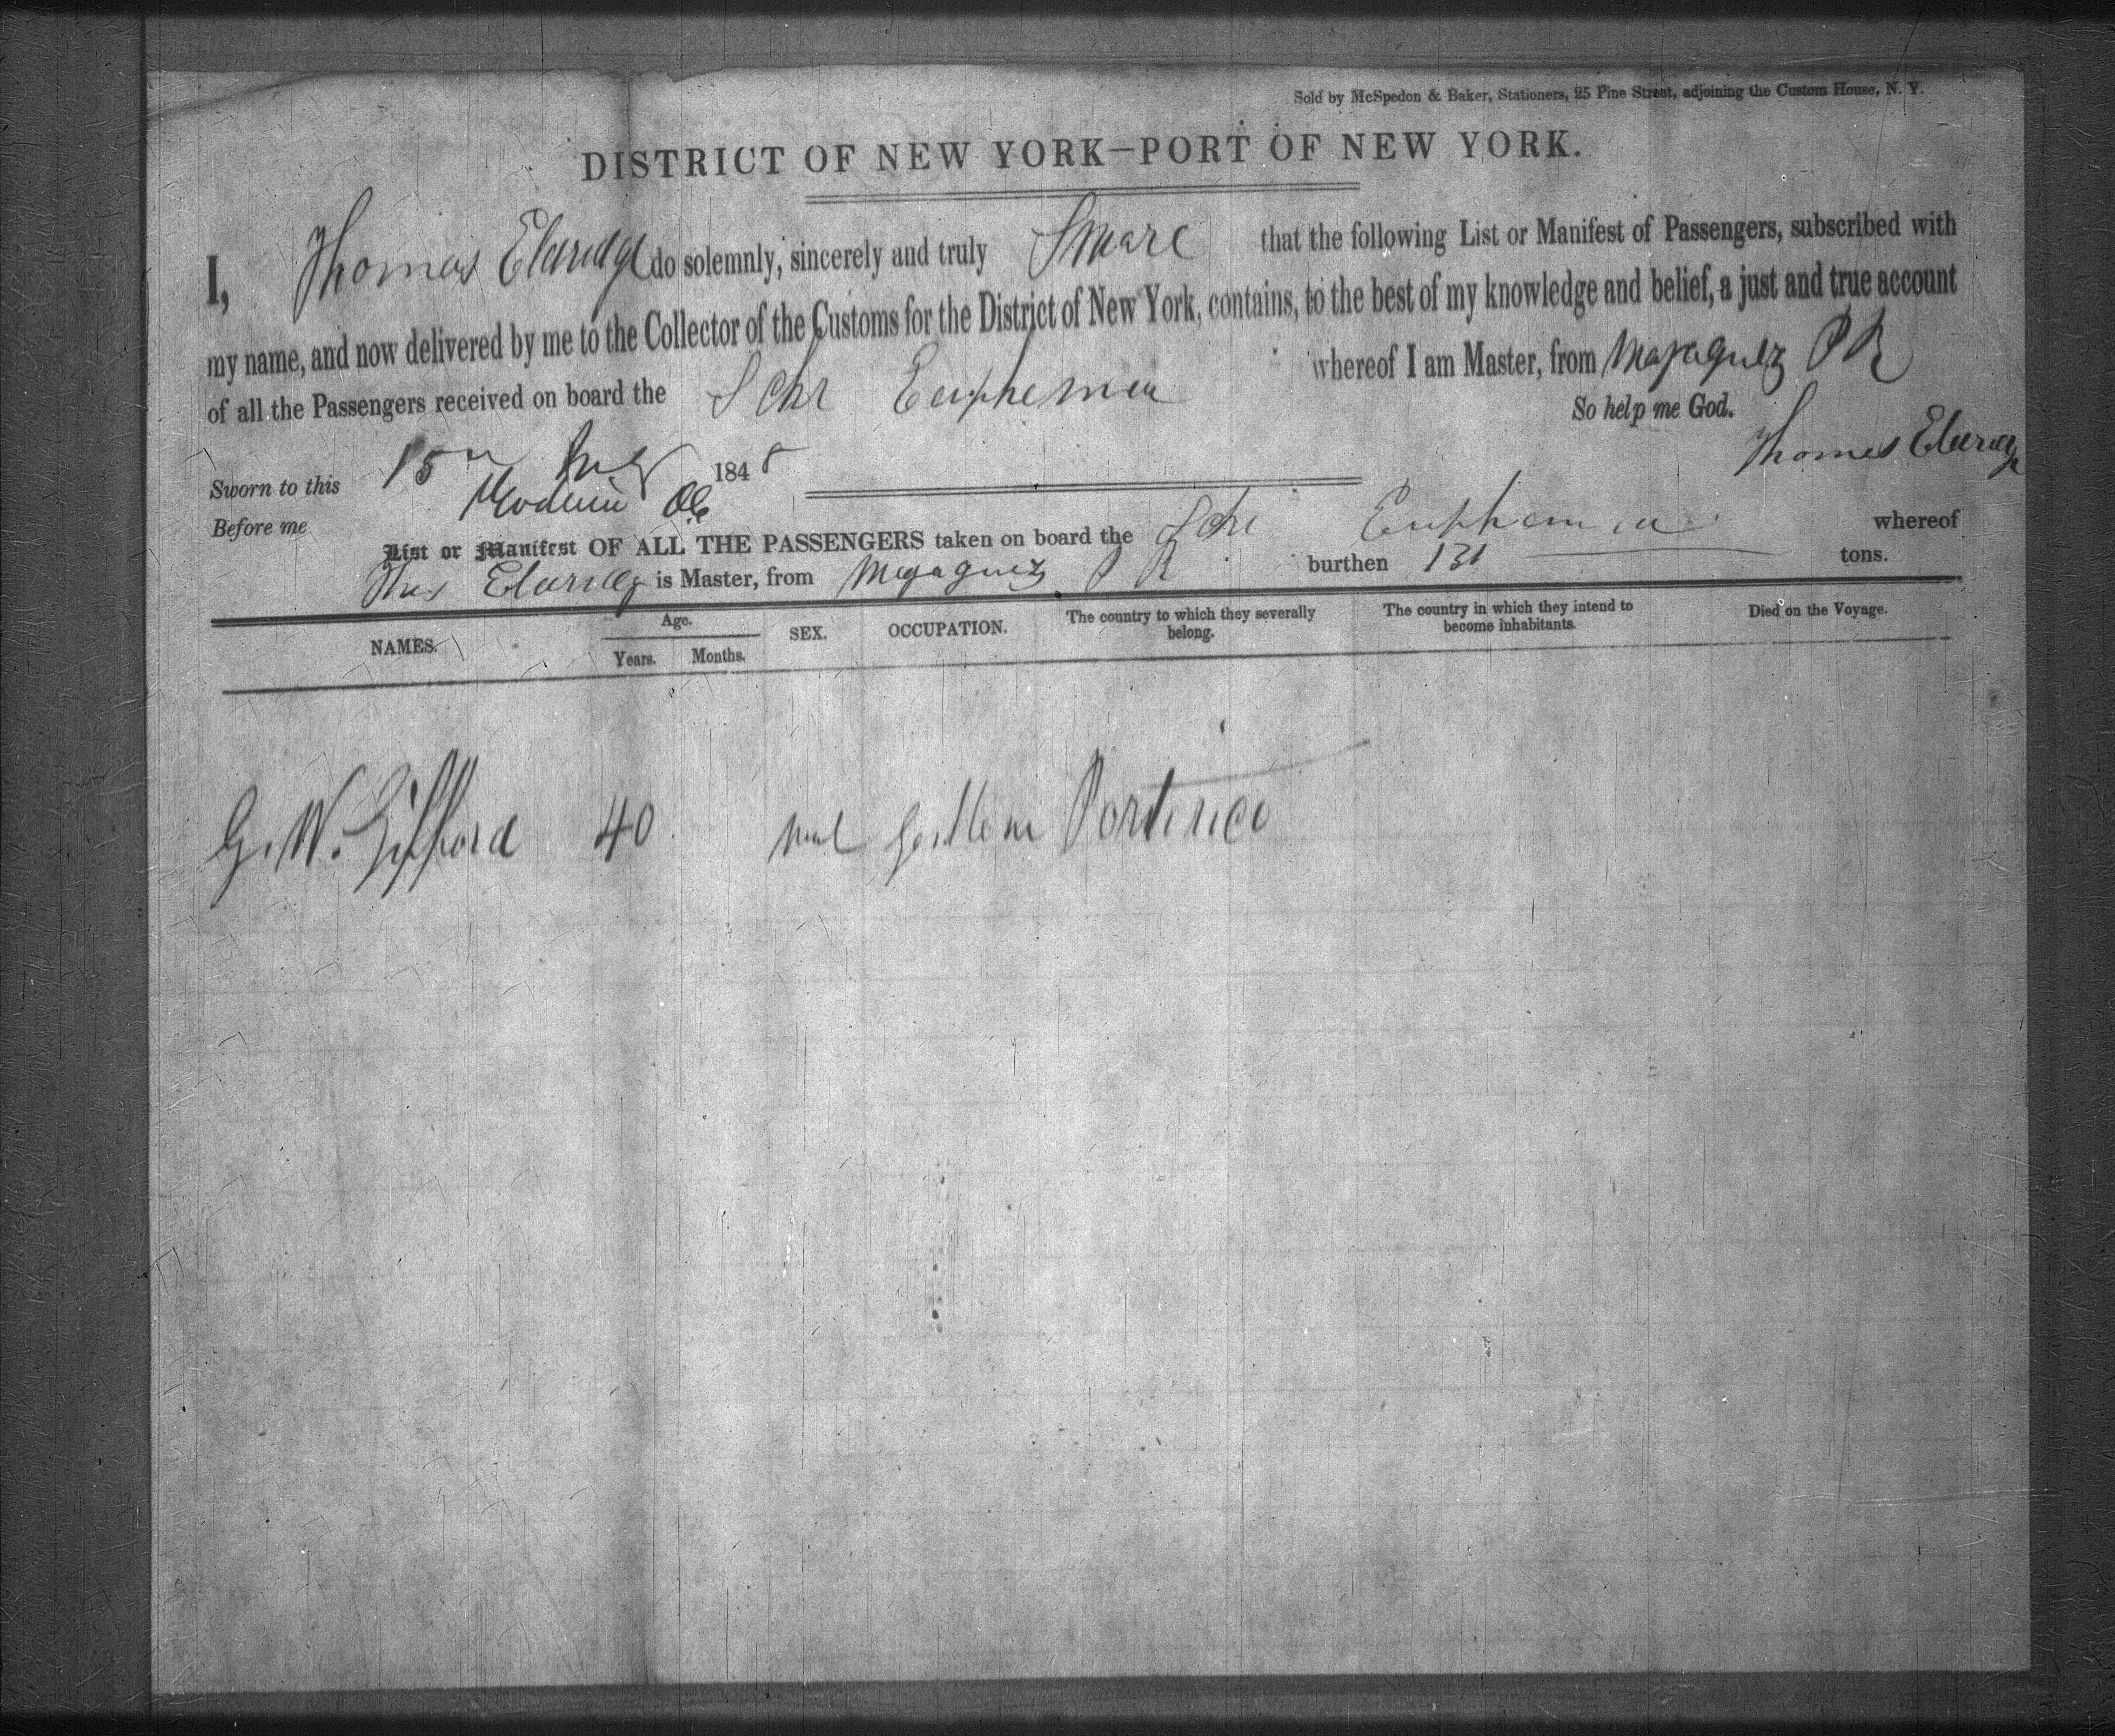 Sold by McSpedon & Baker, Stationers, 25 Pine Street, adjoining the Custom House, N. Y.
DISTRICT OF NEW YORK—PORT OF NEW YORK.
I, Thomas Eldridge do solemnly, sincerely and truly Sware that the following List or Manifest of Passengers, subscribed with
my name, and now delivered by me to the Collector of the Customs for the District of New York, contains, to the best of my knowledge and belief, a just and true account
of all the Passengers received on board the Schr Euphemia whereof I am Master, from Mayaguez P R
So help me God.
Thomas Eldridge
Sworn to this 15 July 1848
Before me
List or Manifest OF ALL THE PASSENGERS taken on board the Schr Euphemia whereof
Thos Eldridge is Master, from Mayaguez P R burthen 131 tons.
NAMES. Age. Years. Months. SEX. OCCUPATION. The country to which they severally belong. The country in which they intend to become inhabitants. Died on the Voyage.
G. W. Gifford 40 Portorico